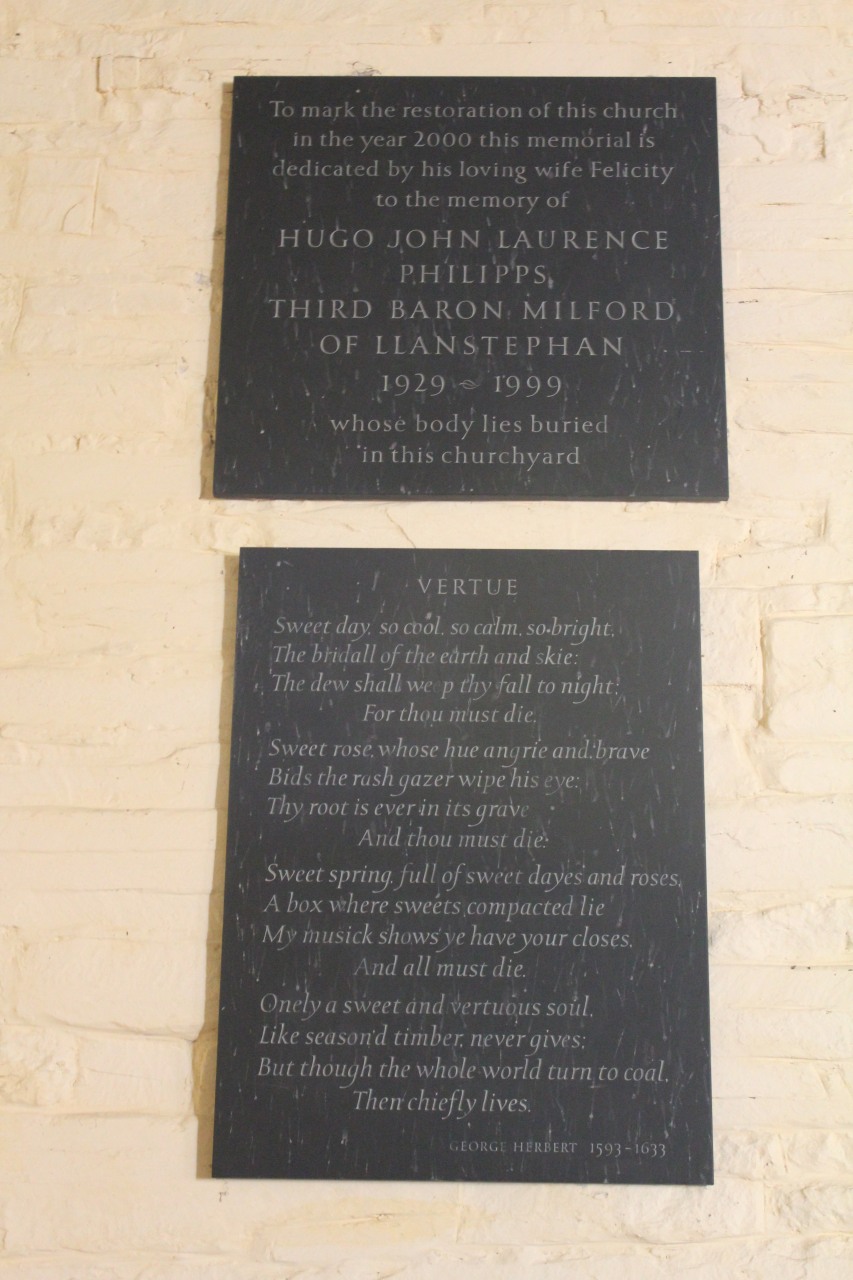 To mark the restoration of this church
in the year 2000 this memorial is
dedicated by his loving wife Felicity
to the memory of
HUGO JOHN LAURENCE
PHILIPPS,
THIRD BARON MILFORD
OF LLANSTEPHAN
1929 ~ 1999
whose body lies buried
in this churchyard
VERTUE
Sweet day, so cool, so calm, so bright,
The bridall of the earth and skie:
The dew shall weep thy fall to night;
For thou must die.
Sweet rose, whose hue angrie and brave
Bids the rash gazer wipe his eye:
Thy root is ever in its grave
And thou must die.
Sweet spring, full of sweet dayes and roses,
A box where sweets compacted lie
My musick shows ye have your closes,
And all must die.
Onely a sweet and vertuous soul,
Like season'd timber, never gives;
But though the whole world turn to coal,
Then chiefly lives.
GEORGE HERBERT 1593-1633